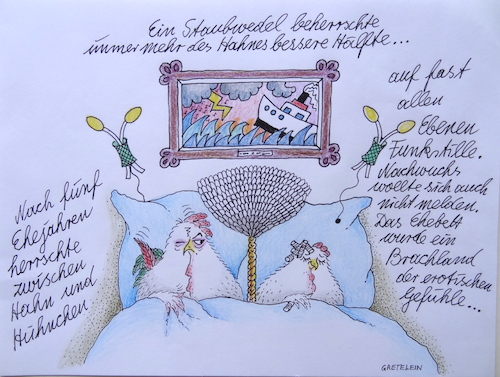 Ein Staubwedel beherrschte
immer mehr des Hahnes bessere Hälfte...
Nach fünf
Ehejahren
herrschte
zwischen
Hahn und
Hühnchen
auf fast
allen
Ebenen
Funkstille.
Nachwuchs
wollte sich auch
nicht melden.
Das Ehebett
wurde ein
Brachland
der erotischen
Gefühle...
GRETELEIN